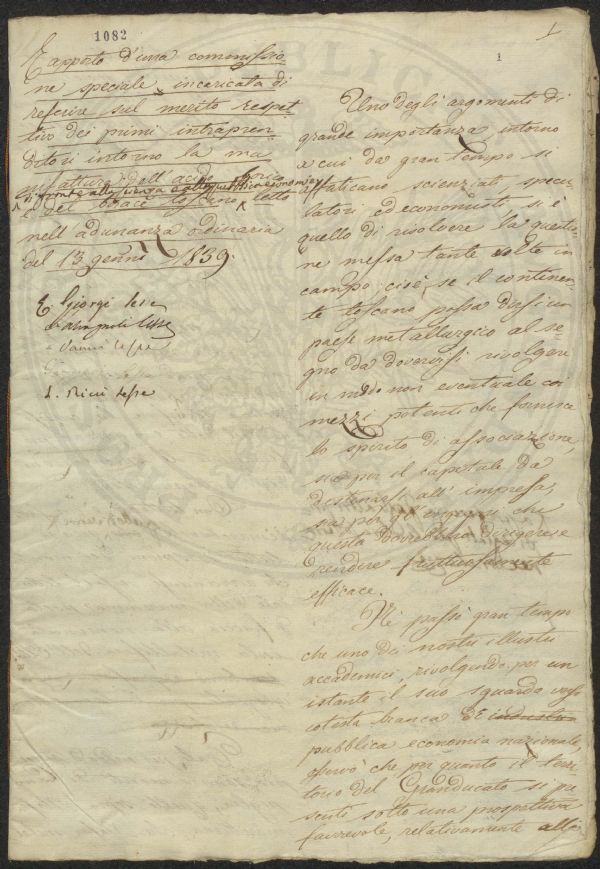 1082
1
1
Rapporto d'una commissio
ne speciale incaricata di
referire sul merito respet
tivo dei primi intrapren
ditori intorno la ma
nifattura dell'acido borico
e del borace toscano, letto
nell'adunanza ordinaria
del 13 genn. 1839.
E. Giorgi Lesse
Lesse
Vanni Lesse
L. Ricci Lesse
Uno degli argomenti di
grande importanza intorno
a cui da gran tempo si
faticano scienziati, specu-
latori, ed economisti si è
quello di risolvere la questio
ne messa tante volte in
campo; cioè, se il continen-
te toscano possa dirsi un
paese metallurgico al se-
gno da doversi rivolgere
in modo non eventuale coi
mezzi potenti che fornisce
lo spirito di associazione,
sia per il capitale da
destinarsi all'impresa,
sia per gl'ingegni che
questa dovrebbero dirigere e
rendere fruttuosamente
efficace.
Nè passò gran tempo
che uno dei nostri illustri
accademici, rivolgendo per un
istante il suo sguardo verso
cotesta branca di industria
pubblica economia nazionale,
osservò che per quanto il terri-
torio del Granducato si pre
senti sotto una prospettiva
favorevole, relativamente alla